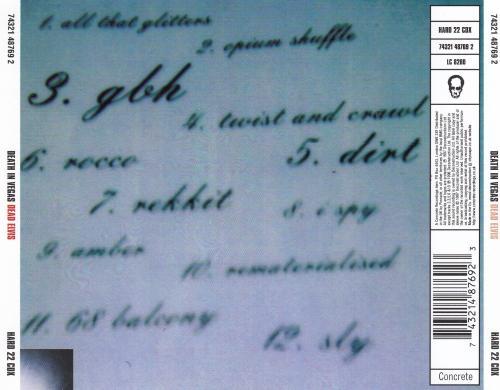 1. all that glitters
2. opium shuffle
3. gbh
4. twist and crawl
5. dirt
6. rocco
7. rekkit
8. i spy
9. amber
10. rematerialised
11. 68 balcony
12. sly
74321 48769 2
DEATH IN VEGAS DEAD ELVIS
HARD 22 CDX
74321 48769 2
DEATH IN VEGAS DEAD ELVIS
HARD 22 CDX
HARD 22 CDX
74321 48769 2
LC 8280
7 43214 87692 3
Concrete